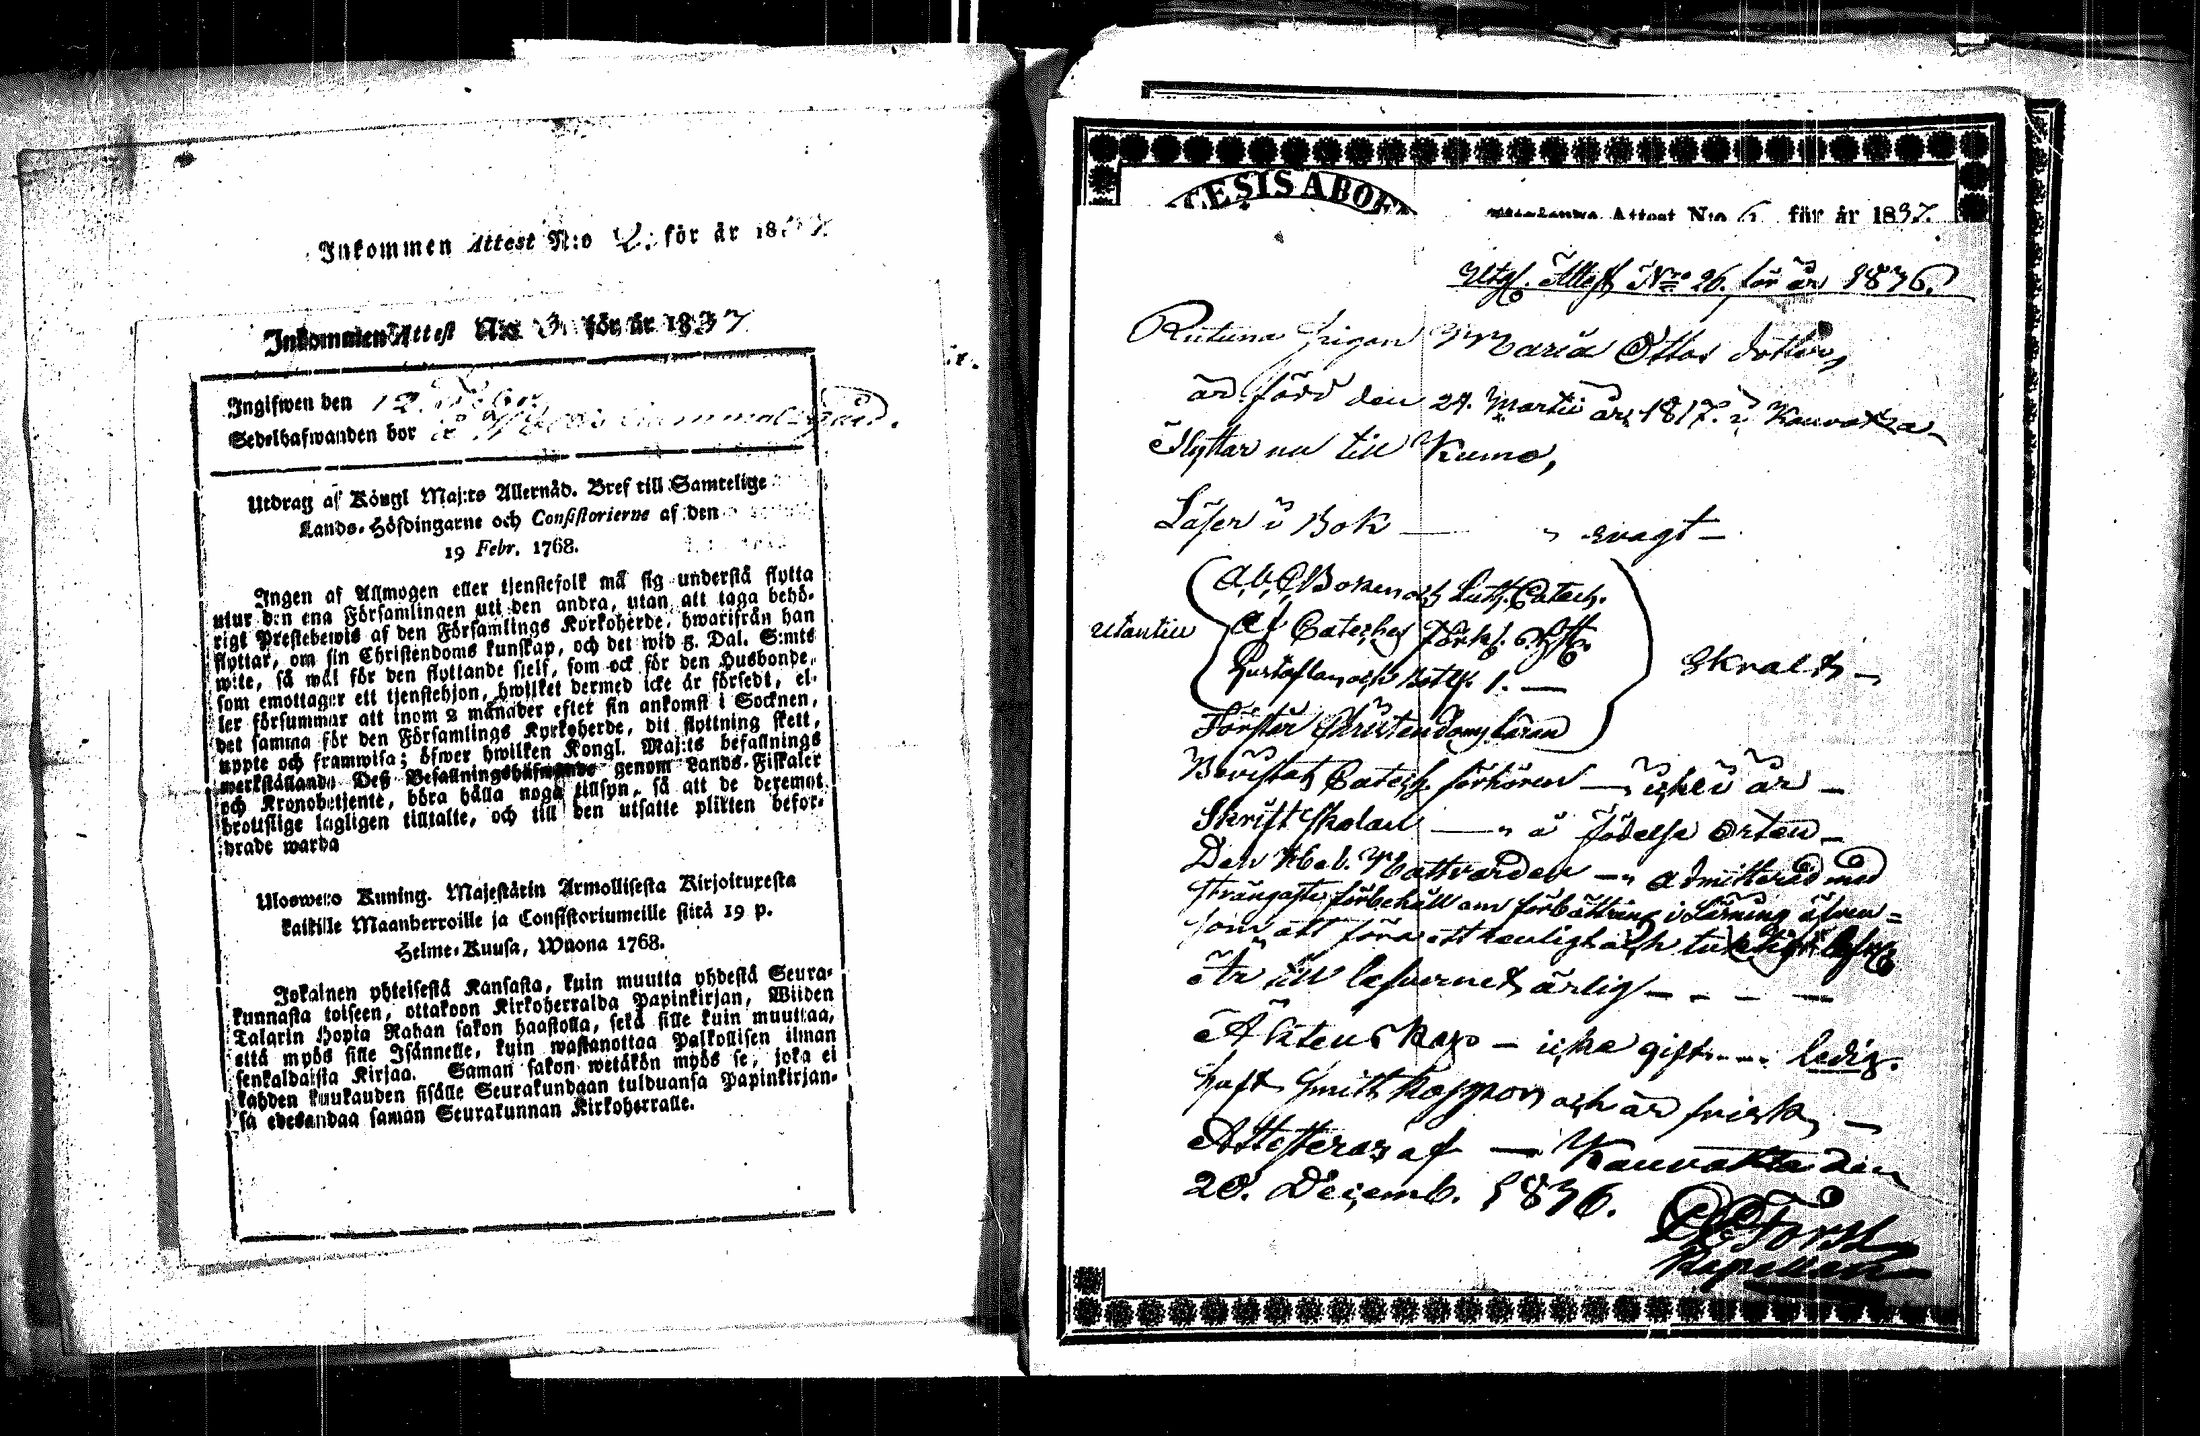 Inkommen Attest N:o 2. för år 1837
Inkommen Attest N:o 3. för år 1837
Ingifwen den 12. Febr.
Sedelhafwanden bor i Gammalgård.
Utdrag af Kongl Maj:ts Allernåd. Bref till Samtelige
Lands-Höfdingarne och Consistorierne af den
19 Febr. 1768.
Ingen af Allmogen eller tjenstefolk må sig understå flytta
utur den ena Församlingen uti den andra, utan att taga behö-
rigt Prestebewis af den Församlings Kyrkoherde, hwarifrån han
flyttar, om sin Christendoms kunskap, och det wid 5. Dal. S:mts
wite, så wäl för den flyttande sielf, som ock för den Husbonde,
som emottager ett tjenstehjon, hwilket dermed icke är försedt, el-
ler försummar att inom 2 månader efter sin ankomst i Socknen,
det samma för den Församlings Kyrkoherde, dit flyttning skett,
uppte och framwisa; öfwer hwilken Kongl. Maj:ts befallnings
werkställande Deß Befallningshafwande genom Lands-Fiskaler
och Kronobetjente, böra hålla noga tillsyn, så att de deremot
brottslige lagligen tilltalte, och till den utsatte plikten befor-
drade warda
Uloswero Kuning. Majestätin Armollisesta Kirjoituxesta
kaikille Maanherroille ja Consistoriumeille siitä 19 p.
Helme-Kuusa, Wuona 1768.
Jokainen yhteisestä Kansasta, kuin muutta yhdestä Seura-
kunnasta toiseen, ottakoon Kirkoherralda Papinkirjan, Wiiden
Talarin Hopia Rahan sakon haastolla, sekä sille kuin muuttaa,
että myös sille Isännelle, kuin wastanottaa Palkollisen ilman
senkaldaista Kirjaa. Saman sakon wetäkön myös se, joka ei
kahden kuukauden sisälle Seurakundaan tulduansa Papinkirjan-
sa edesandaa saman Seurakunnan Kirkoherralle.
CESIS ABOE
Attest N:o 6. för år 1837.
Utgf. Attest Nro 26. för år 1836.
Pigan Maria Ottos dotter,
är född den 24. Martii år 1817. i Kauvatsa
Flyttar nu till Kumo,
Läser i Bok — " svagt —
utantill
A,b,C, Boken och Luth. Catech.
Af Cateches Förkl.
Hustaflan och
Förstår Christendoms läran
Skralt —
Bevistat Catech. förhören — " icke i år —
Skrift skolan — " å födelse orten —
Den Hel. Nattvarden — " admitterad med
strängaste förbehåll om förbättring i Läsning äfven=
som att föra ett ärligt och
Är till lefvernet ärlig — — — —
Äkten skap — icke gift - - - ledig.
haft Smitt koppor och är frisk —
Attesteras af — Kauvatsa den
20. Decemb. 1836.